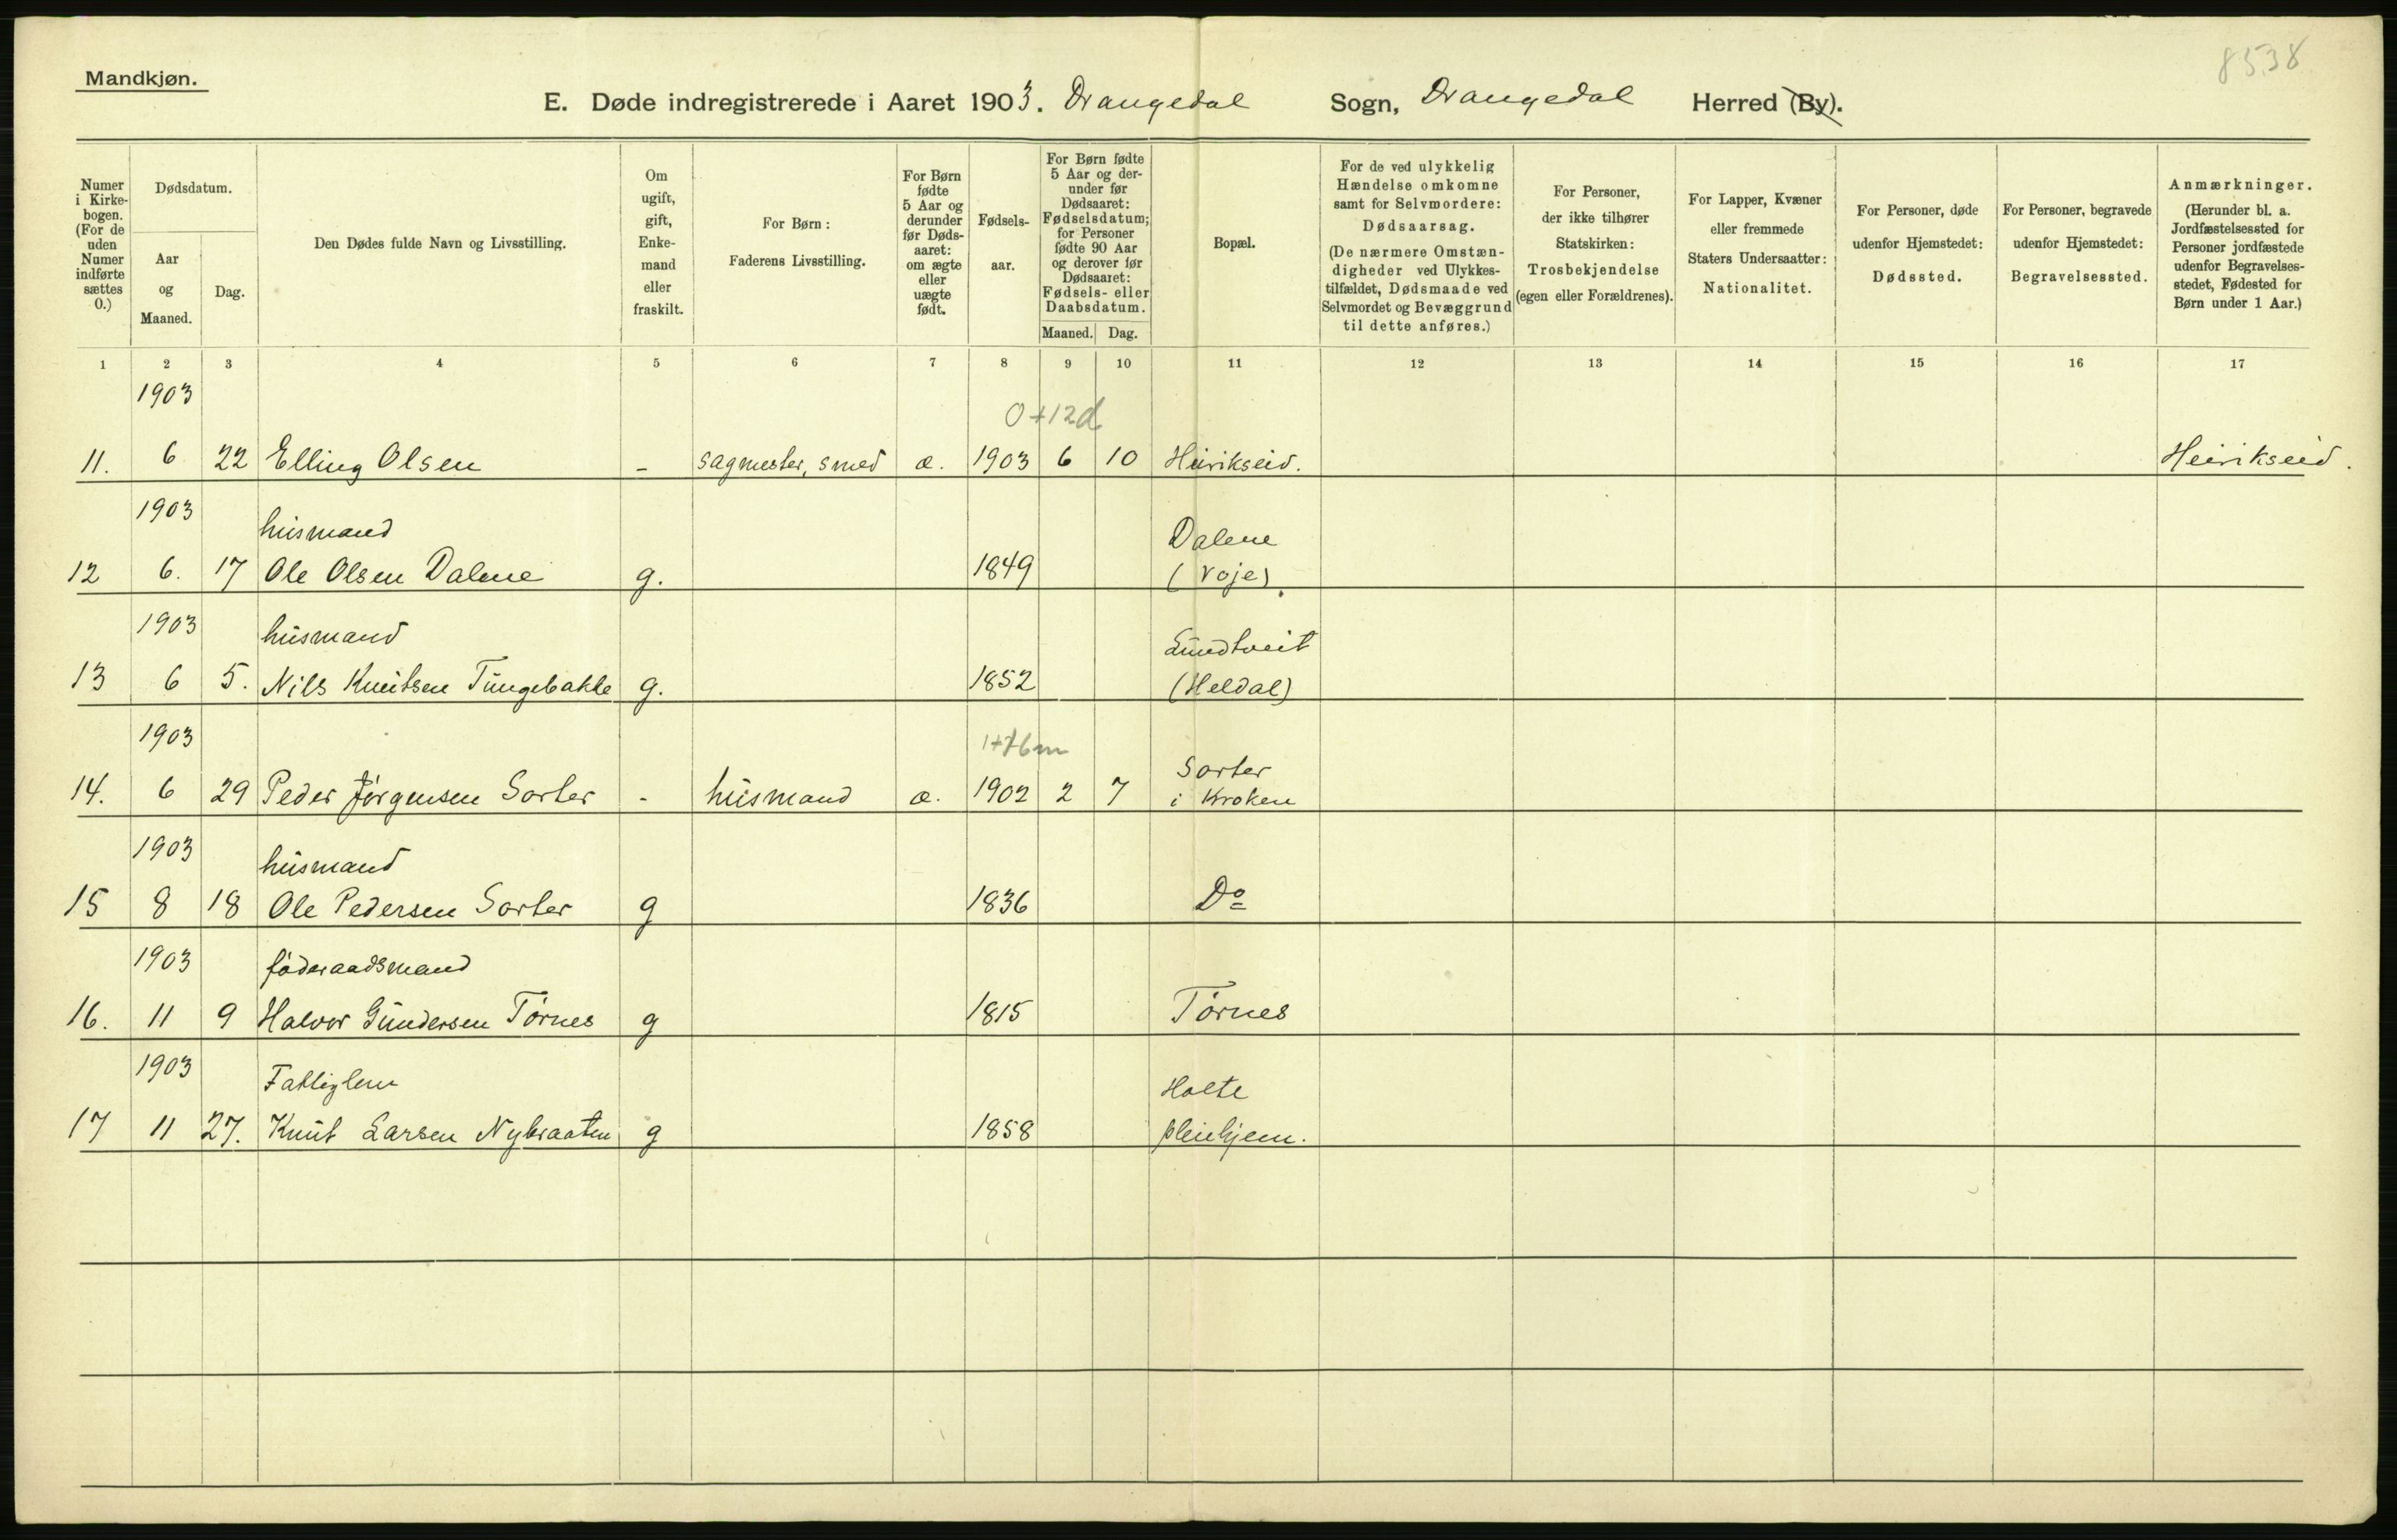 8538
Mandkjøn.
E. Døde indregistrerede i Aaret 1903. Drangedal Sogn, Drangedal Herred (By).
Numer i Kirke-bogen. (For de uden Numer indførte sættes 0.)
Dødsdatum.
Aar og Maaned.
Dag.
Den Dødes fulde Navn og Livsstilling.
Om ugift, gift, Enke-mand eller fraskilt.
For Børn: Faderens Livsstilling.
For Børn fødte 5 Aar og derunder før Døds-aaret: om ægte eller uægte født.
Fødsels-aar.
For Børn fødte 5 Aar og der-under før Dødsaaret: Fødselsdatum; for Personer fødte 90 Aar og derover før Dødsaaret: Fødsels- eller Daabsdatum.
Maaned. Dag.
Bopæl.
For de ved ulykkelig Hændelse omkomne samt for Selvmordere: Dødsaarsag. (De nærmere Omstæn-digheder ved Ulykkes-tilfældet, Dødsmaade ved Selvmordet og Bevæggrund til dette anføres.)
For Personer, der ikke tilhører Statskirken: Trosbekjendelse (egen eller Forældrenes).
For Lapper, Kvæner eller fremmede Staters Undersaatter: Nationalitet.
For Personer, døde udenfor Hjemstedet: Dødssted.
For Personer, begravede udenfor Hjemstedet: Begravelsessted.
Anmærkninger. (Herunder bl. a. Jordfæstelsessted for Personer jordfæstede udenfor Begravelses-stedet, Fødested for Børn under 1 Aar.)
1 2 3 4 5 6 7 8 9 10 11 12 13 14 15 16 17
1903
0+12d
11. 6 22 Elling Olsen - sagmester, smed æ. 1903 6 10 Heirikseid. Heirikseid.
1903
husmand Dalene
12 6. 17 Ole Olsen Dalene g. 1849 (Voje).
1903
husmand Lundtveit
13 6 5. Nils Knutsen Tungebakke g. 1852 (Heldal)
1903
1+ 6m Sorter
14. 6 29 Peder Jørgensen Sorter - husmand æ. 1902 2 7 i Kroken
1903
husmand
15 8 18 Ole Pedersen Sorter g 1836 Do
1903
føderaadsmand
16. 11 9 Halvor Gundersen Tørnes g 1815 Tørnes
1903
Fattiglem Holte
17 11 27. Knut Larsen Nybraaten g 1858 pleiehjem.